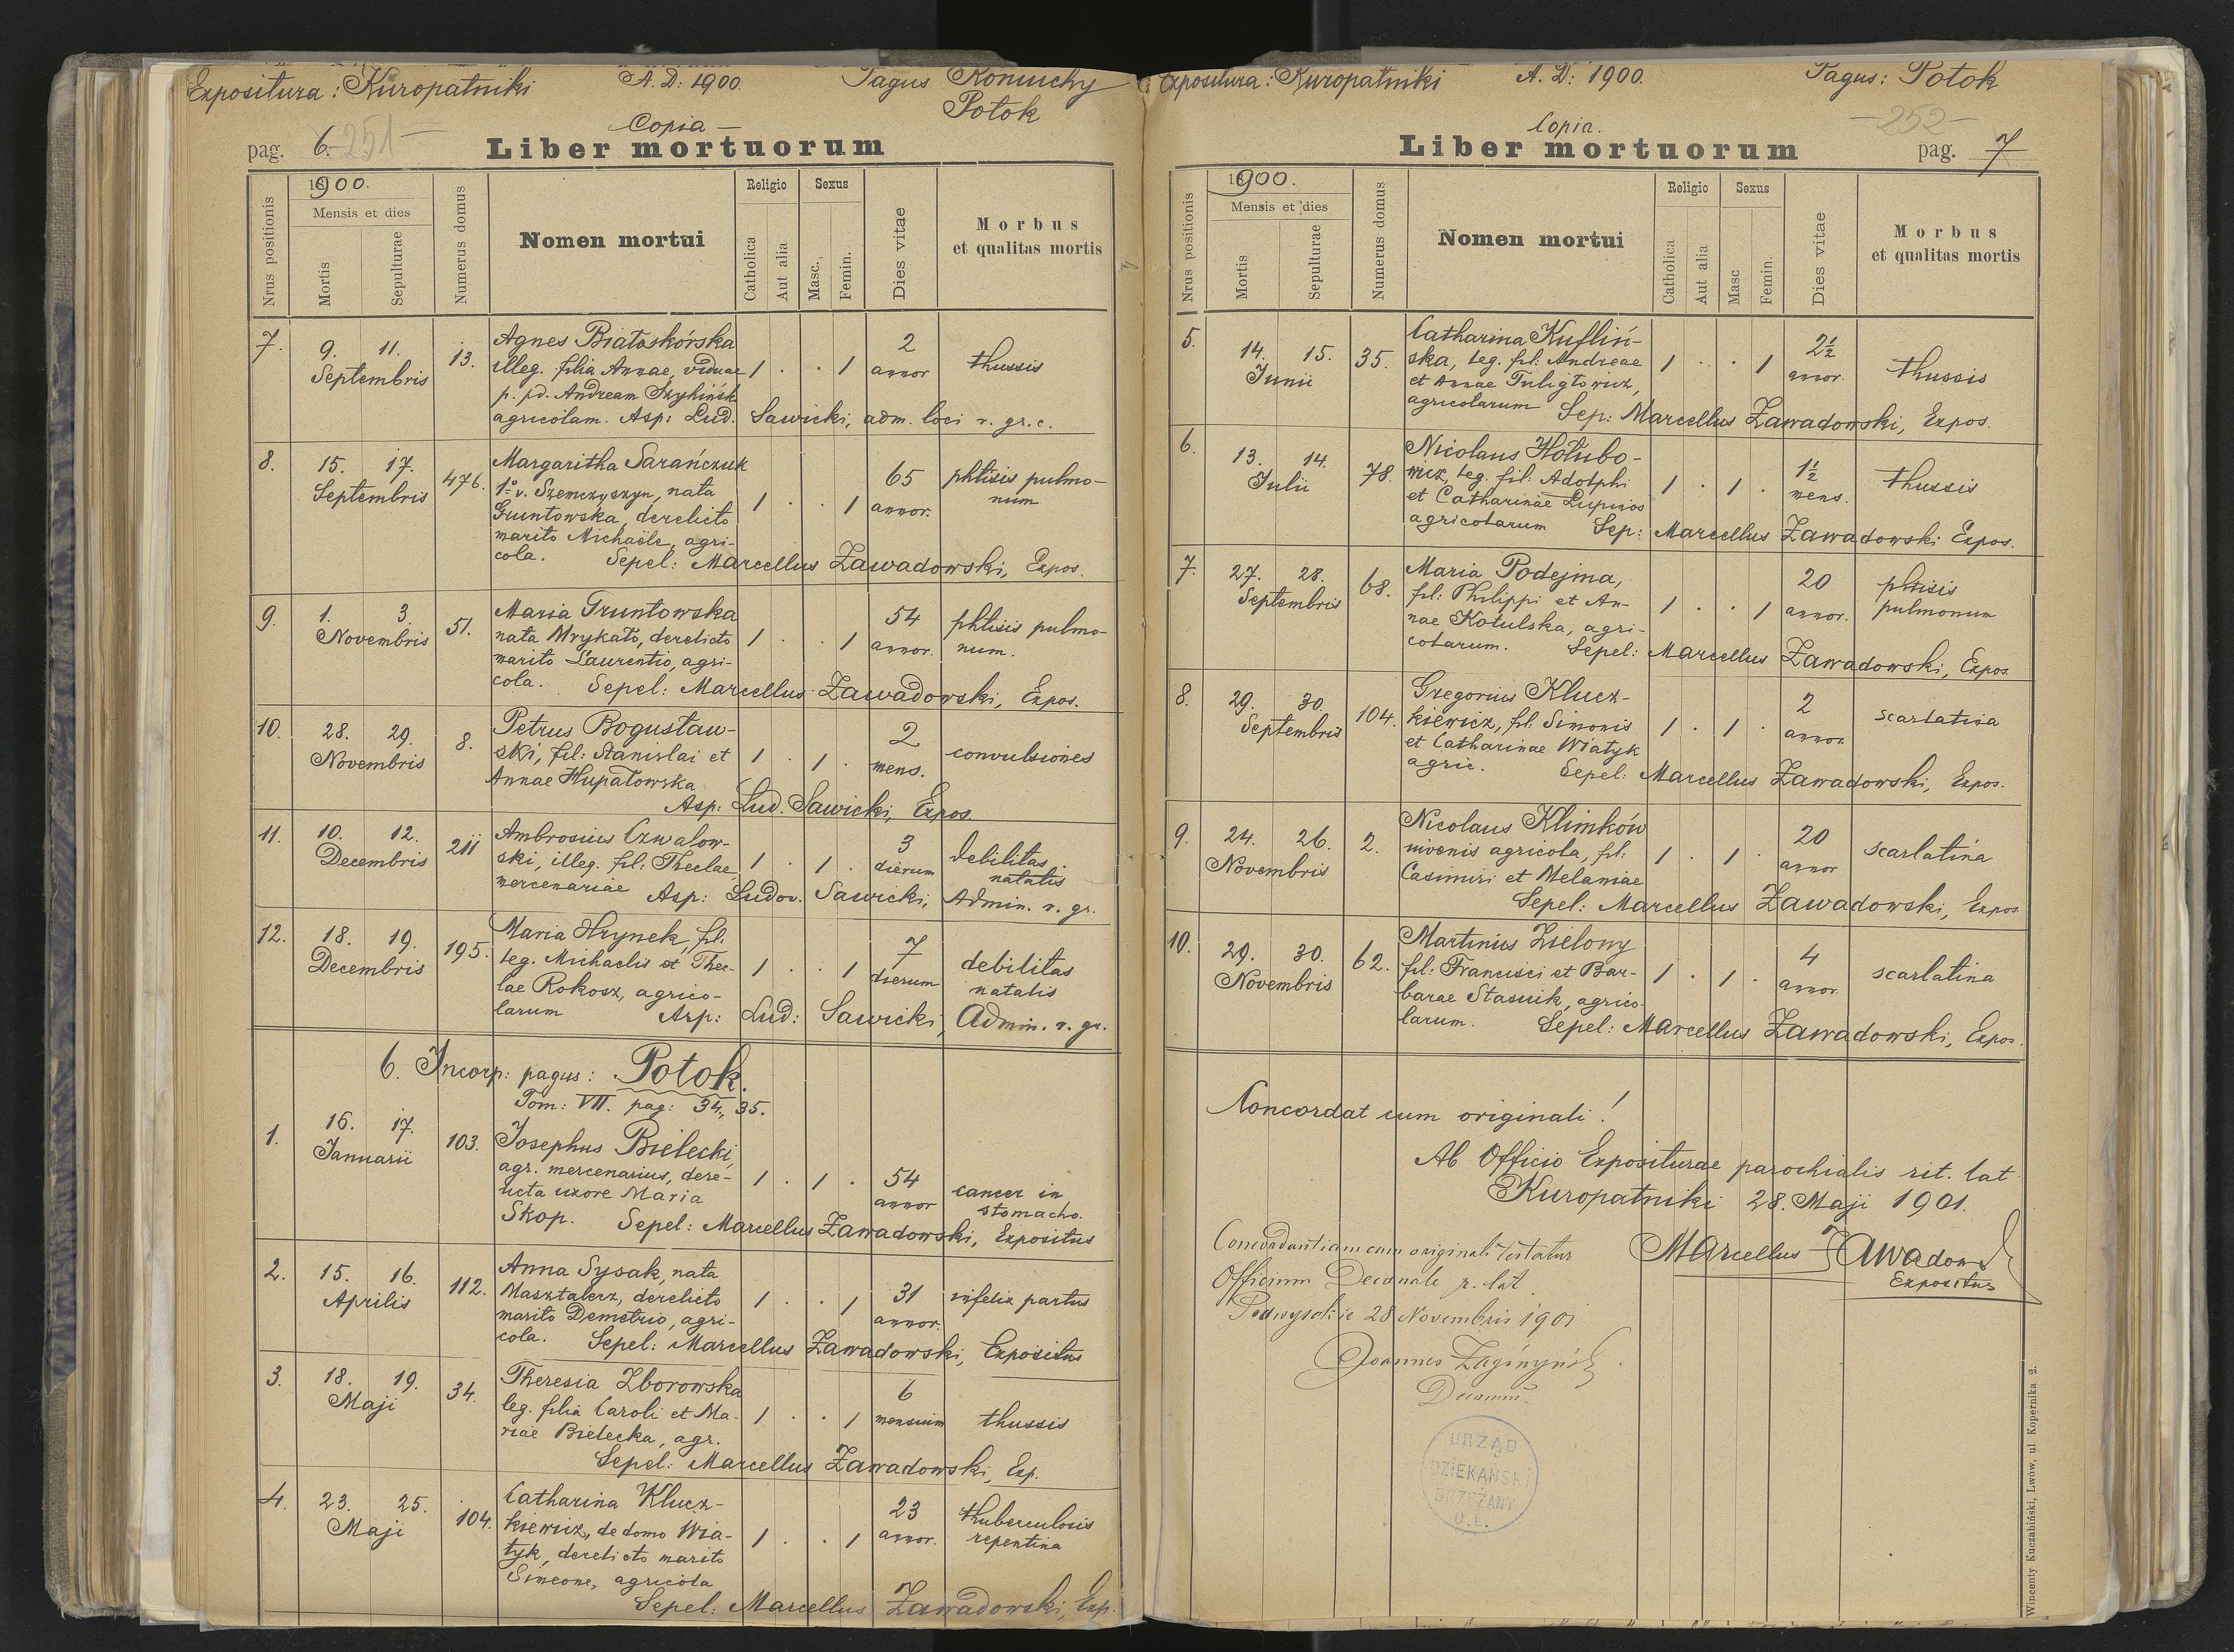 Expositura: Kuropatniki A.D: 1900. Pagus Koniuchy
Potok
Copia
pag. 6. 251
Liber mortuorum
Nrus positionis
1900.
Mensis et dies
Mortis
Sepulturae
Numerus domus
Nomen mortui
Religio
Catholica
Aut alia
Sexus
Masc.
Femin.
Dies vitae
Morbus
et qualitas mortis
7. 9. 11. Septembris 13.
Agnes Białoskórska
illeg. filia Annae, viduae 1 . . 1 2 annor thussis
p. pd. Andream
agricolam. Asp: Lud. Sawicki, adm. loci r. gr. c.
8. 15. 17. Septembris 476.
Margaritha Sarańczuk
1º v. Szemczyszyn, nata
Gruntowska, derelicto 1 . . 1 65 annor. phtisis pulmo-
num
marito Michaële, agri-
cola. Sepel: Marcellus Zawadowski, Expos.
9. 1. 3. Novembris 51.
Maria Gruntowska
nata Mrykato, derelicto 1 . . 1 54 annor. phtisis pulmo-
num.
marito Laurentio, agri-
cola. Sepel: Marcellus Zawadowski, Expos.
10. 28. 29. Novembris 8.
Petrus Bogusław-
ski, fil: Stanislai et 1 . 1 . 2 mens. convulsiones
Annae Hupałowska
Asp: Lud. Sawicki, Expos.
11. 10. 12. Decembris 211
Ambrosius Czwalow-
ski, illeg. fil: Theclae, 1 . 1 . 3 dierum debilitas
natalis
mercenariae Asp: Ludov. Sawicki, Admin. r. gr.
12. 18. 19. Decembris 195.
Maria Hrynek, fil.
leg. Michaelis et Thec- 1 . . 1 7 dierum debilitas
natalis
lae Rokosz, agrico-
larum Asp: Lud: Sawicki, Admin. r. gr.
6. Incorp: pagus: Potok.
Tom: VII. pag: 34, 35.
1. 16. 17. Januarii 103.
Josephus Bielecki,
agr. mercenarius, dere-
licta uxore Maria 1 . 1 . 54 annor cancer in
stomacho.
Skop. Sepel: Marcellus Zawadowski, Expositus
2. 15. 16. Aprilis 112.
Anna Sysak, nata
Masztalerz, derelicto 1 . . 1 31 annor. infelix partus
marito Demetrio, agri-
cola. Sepel: Marcellus Zawadowski, Expositus
3. 18. 19. Maji 34.
Theresia Zborowska
leg. filia Caroli et Ma- 1 . . 1 6 mensium thussis
riae Bielecka, agr.
Sepel: Marcellus Zawadowski, Exp.
4. 23. 25. Maji 104.
Catharina Klucz-
kiewicz, de domo Wia- 1 . . 1 23 annor. thuberculosis
repentina
tyk, derelicto marito
Simeone, agricola
Sepel: Marcellus Zawadowski, Exp.
Expositura: Kuropatniki A.D: 1900. Pagus: Potok
252
Copia.
Liber mortuorum
pag. 7
Nrus positionis
1900.
Mensis et dies
Mortis
Sepulturae
Numerus domus
Nomen mortui
Religio
Catholica
Aut alia
Sexus
Masc
Femin.
Dies vitae
Morbus
et qualitas mortis
5. 14. 15. Junii 35.
Catharina Kufliń-
ska, leg. fil. Andreae 1 . . 1 2½ annor. thussis
et Annae Tuligłowicz,
agricolarum Sep: Marcellus Zawadowski, Expos.
6. 13. 14. Julii 78.
Nicolaus Hołubo-
wicz, leg. fil: Adolphi 1 . 1 . 1½ mens. thussis
et Catharinae Lupinos
agricolarum Sep: Marcellus Zawadowski Expos.
7. 27. 28. Septembris 68.
Maria Podejma,
fil: Philippi et An- 1 . . 1 20 annor. phtisis
pulmonum
nae Kotulska, agri-
colarum. Sepel: Marcellus Zawadowski, Expos
8. 29. 30. Septembris 104.
Gregorius Klucz-
kiewicz, fil. Simonis 1 . 1 . 2 annor. scarlatina
et Catharinae Wiatyk
agric. Sepel: Marcellus Zawadowski, Expos.
9. 24. 26. Novembris 2.
Nicolaus Klimków
iuvenis agricola, fil: 1 . 1 . 20 annor scarlatina
Casimiri et Melaniae
Sepel: Marcellus Zawadowski, Expos
10. 29. 30. Novembris 62.
Martinus Zielony
fil: Francisci et Bar- 1 . 1 . 4 annor. scarlatina
barae Stasiuk, agrico-
larum. Sepel: Marcellus Zawadowski, Expos.
Concordat cum originali!
Ab Officio Expositurae parochialis rit. lat
Kuropatniki 28. Maji 1901.
Marcellus Zawadowski
Expositus
Concordantiam cum originali testatur
Officium Decanale r. lat.
Podwysokie 28 Novembris 1901
Joannes
Decanus
URZĄD
DZIEKAŃSKI
BRZEŻANY
O.Ł.
Wincenty Kuczabiński, Lwów, ul. Kopernika 2.